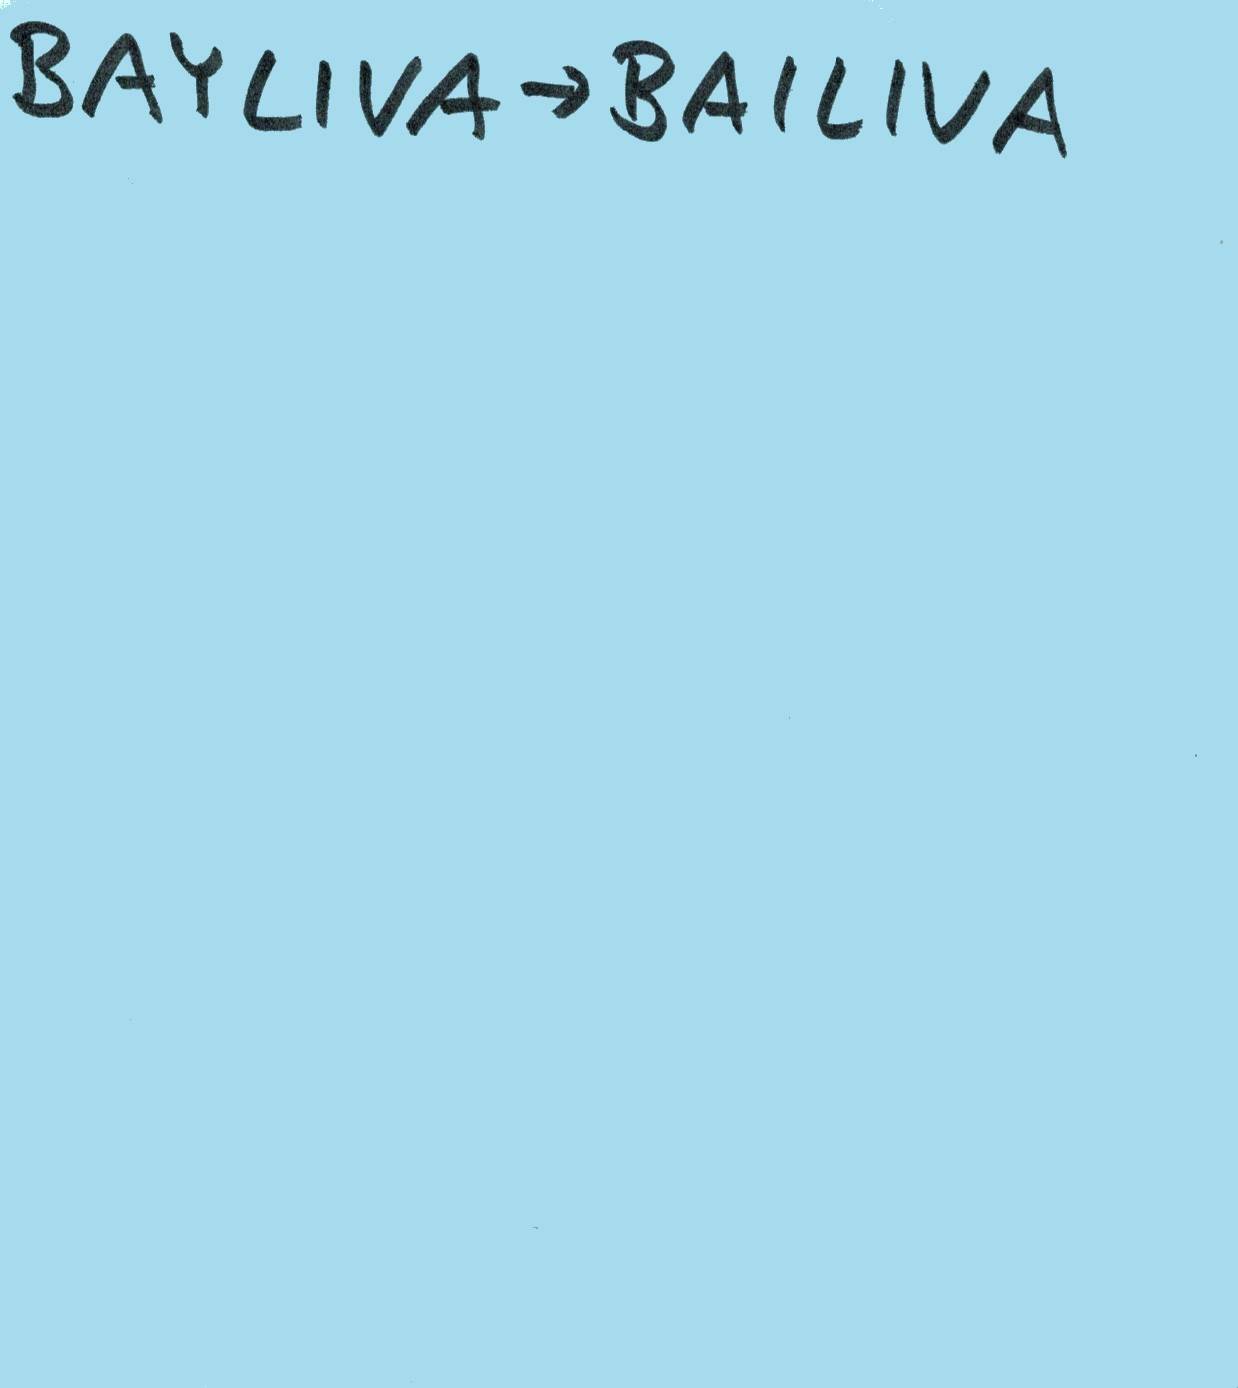 BAYLIVA → BAILIVA